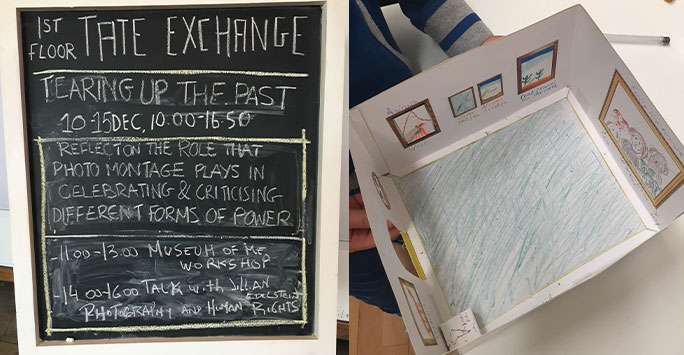 1ST FLOOR TATE EXCHANGE
TEARING UP THE PAST
10-15 DEC, 10.00-16.50
REFLECT ON THE ROLE THAT
PHOTO MONTAGE PLAYS IN
CELEBRATING & CRITICISING
DIFFERENT FORMS OF POWER
-11.00-13.00 MUSEUM OF ME
WORKSHOP
-14.00-16.00 TALK WITH JILLIAN
EDELSTEIN
PHOTOGRAPHY AND HUMAN RIGHTS